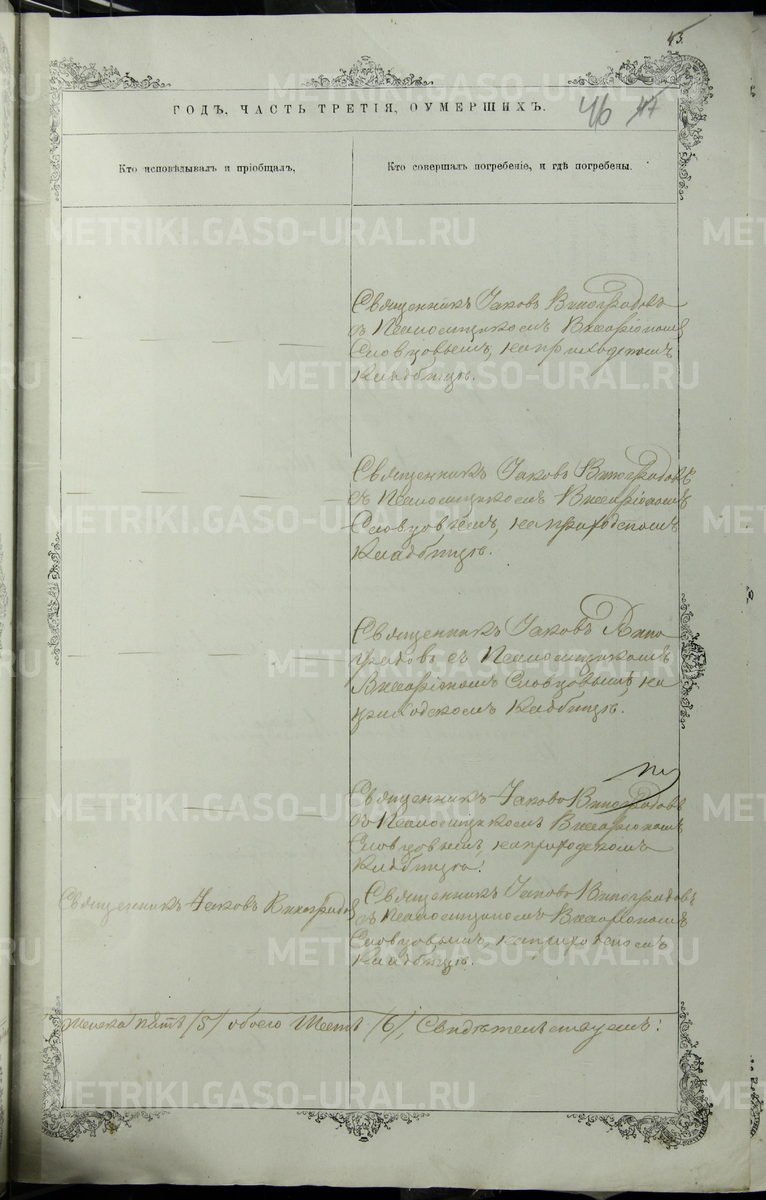 45.
ГОДЪ, ЧАСТЬ ТРЕТІЯ, ОУМЕРШИХЪ.
46 47
Кто исповѣдывалъ и пріобщалъ,
Кто совершалъ погребеніе, и гдѣ погребены.
Священникъ Іаковъ Виноградовъ
съ Псаломщикомъ Виссаріономъ
Словцовымъ, на приходскомъ
Кладбищѣ.
Священникъ Іаковъ Виноградовъ
съ Псаломщикомъ Виссаріономъ
Словцовымъ, на приходскомъ
Кладбищѣ.
Священникъ Іаковъ Вино
градовъ съ Псаломщикомъ
Виссаріономъ Словцовымъ, на
приходскомъ Кладбищѣ.
Священникъ Іаковъ Виноградовъ
съ Псаломщикомъ Виссаріономъ
Словцовымъ, на приходскомъ
Кладбищѣ.
Священникъ Іаковъ Виноградов
Священникъ Іаковъ Виноградовъ
съ Псаломщикомъ Виссаріономъ
Словцовымъ, на приходскомъ
Кладбищѣ.
женска пять /5/ обоего Шесть /6/, Свидѣтельствуемъ:
METRIKI.GASO-URAL.RU